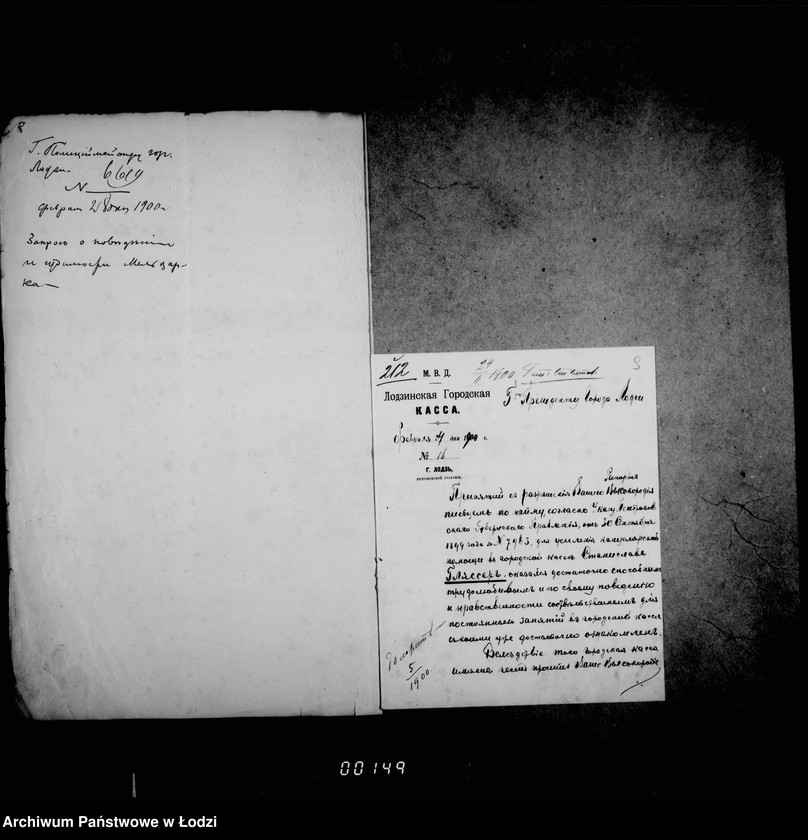 8
Г. Полицiймейстеру гор.
Лодзи.
6619
№
февраля 28 дня 1900 г.
Запросъ о поведенiи
и
ка.—
212
М. В. Д.
Лодзинская Городская
КАССА.
Февраля 24 дня 1900 г.
№ 16
Г. ЛОДЗЬ,
ПЕТРОКОВСКОЙ ГУБЕРНIИ.
24
II 1900
9
Г-ну Президенту Города Лодзи
Рапортъ
Принятый съ разрѣшенiя Вашего Высокородiя
писцемъ по найму, согласно Указу Петроков-
скаго Губернскаго Правленiя, отъ 30 Октября
1899 года за № 7963, для усиленiя канцелярской
помощи въ городской кассѣ Станиславъ
Гляссеръ, оказался достаточно способнымъ
трудолюбивымъ и по своему поведенiю
и нравственности соотвѣтственнымъ для
постоянныхъ занятiй въ городской кассѣ
съ коими уже достаточно ознакомленъ.
Вслѣдствiе того городская касса
имѣетъ честь просить Ваше Высокородiе
5
1900
00149
Archiwum Państwowe w Łodzi